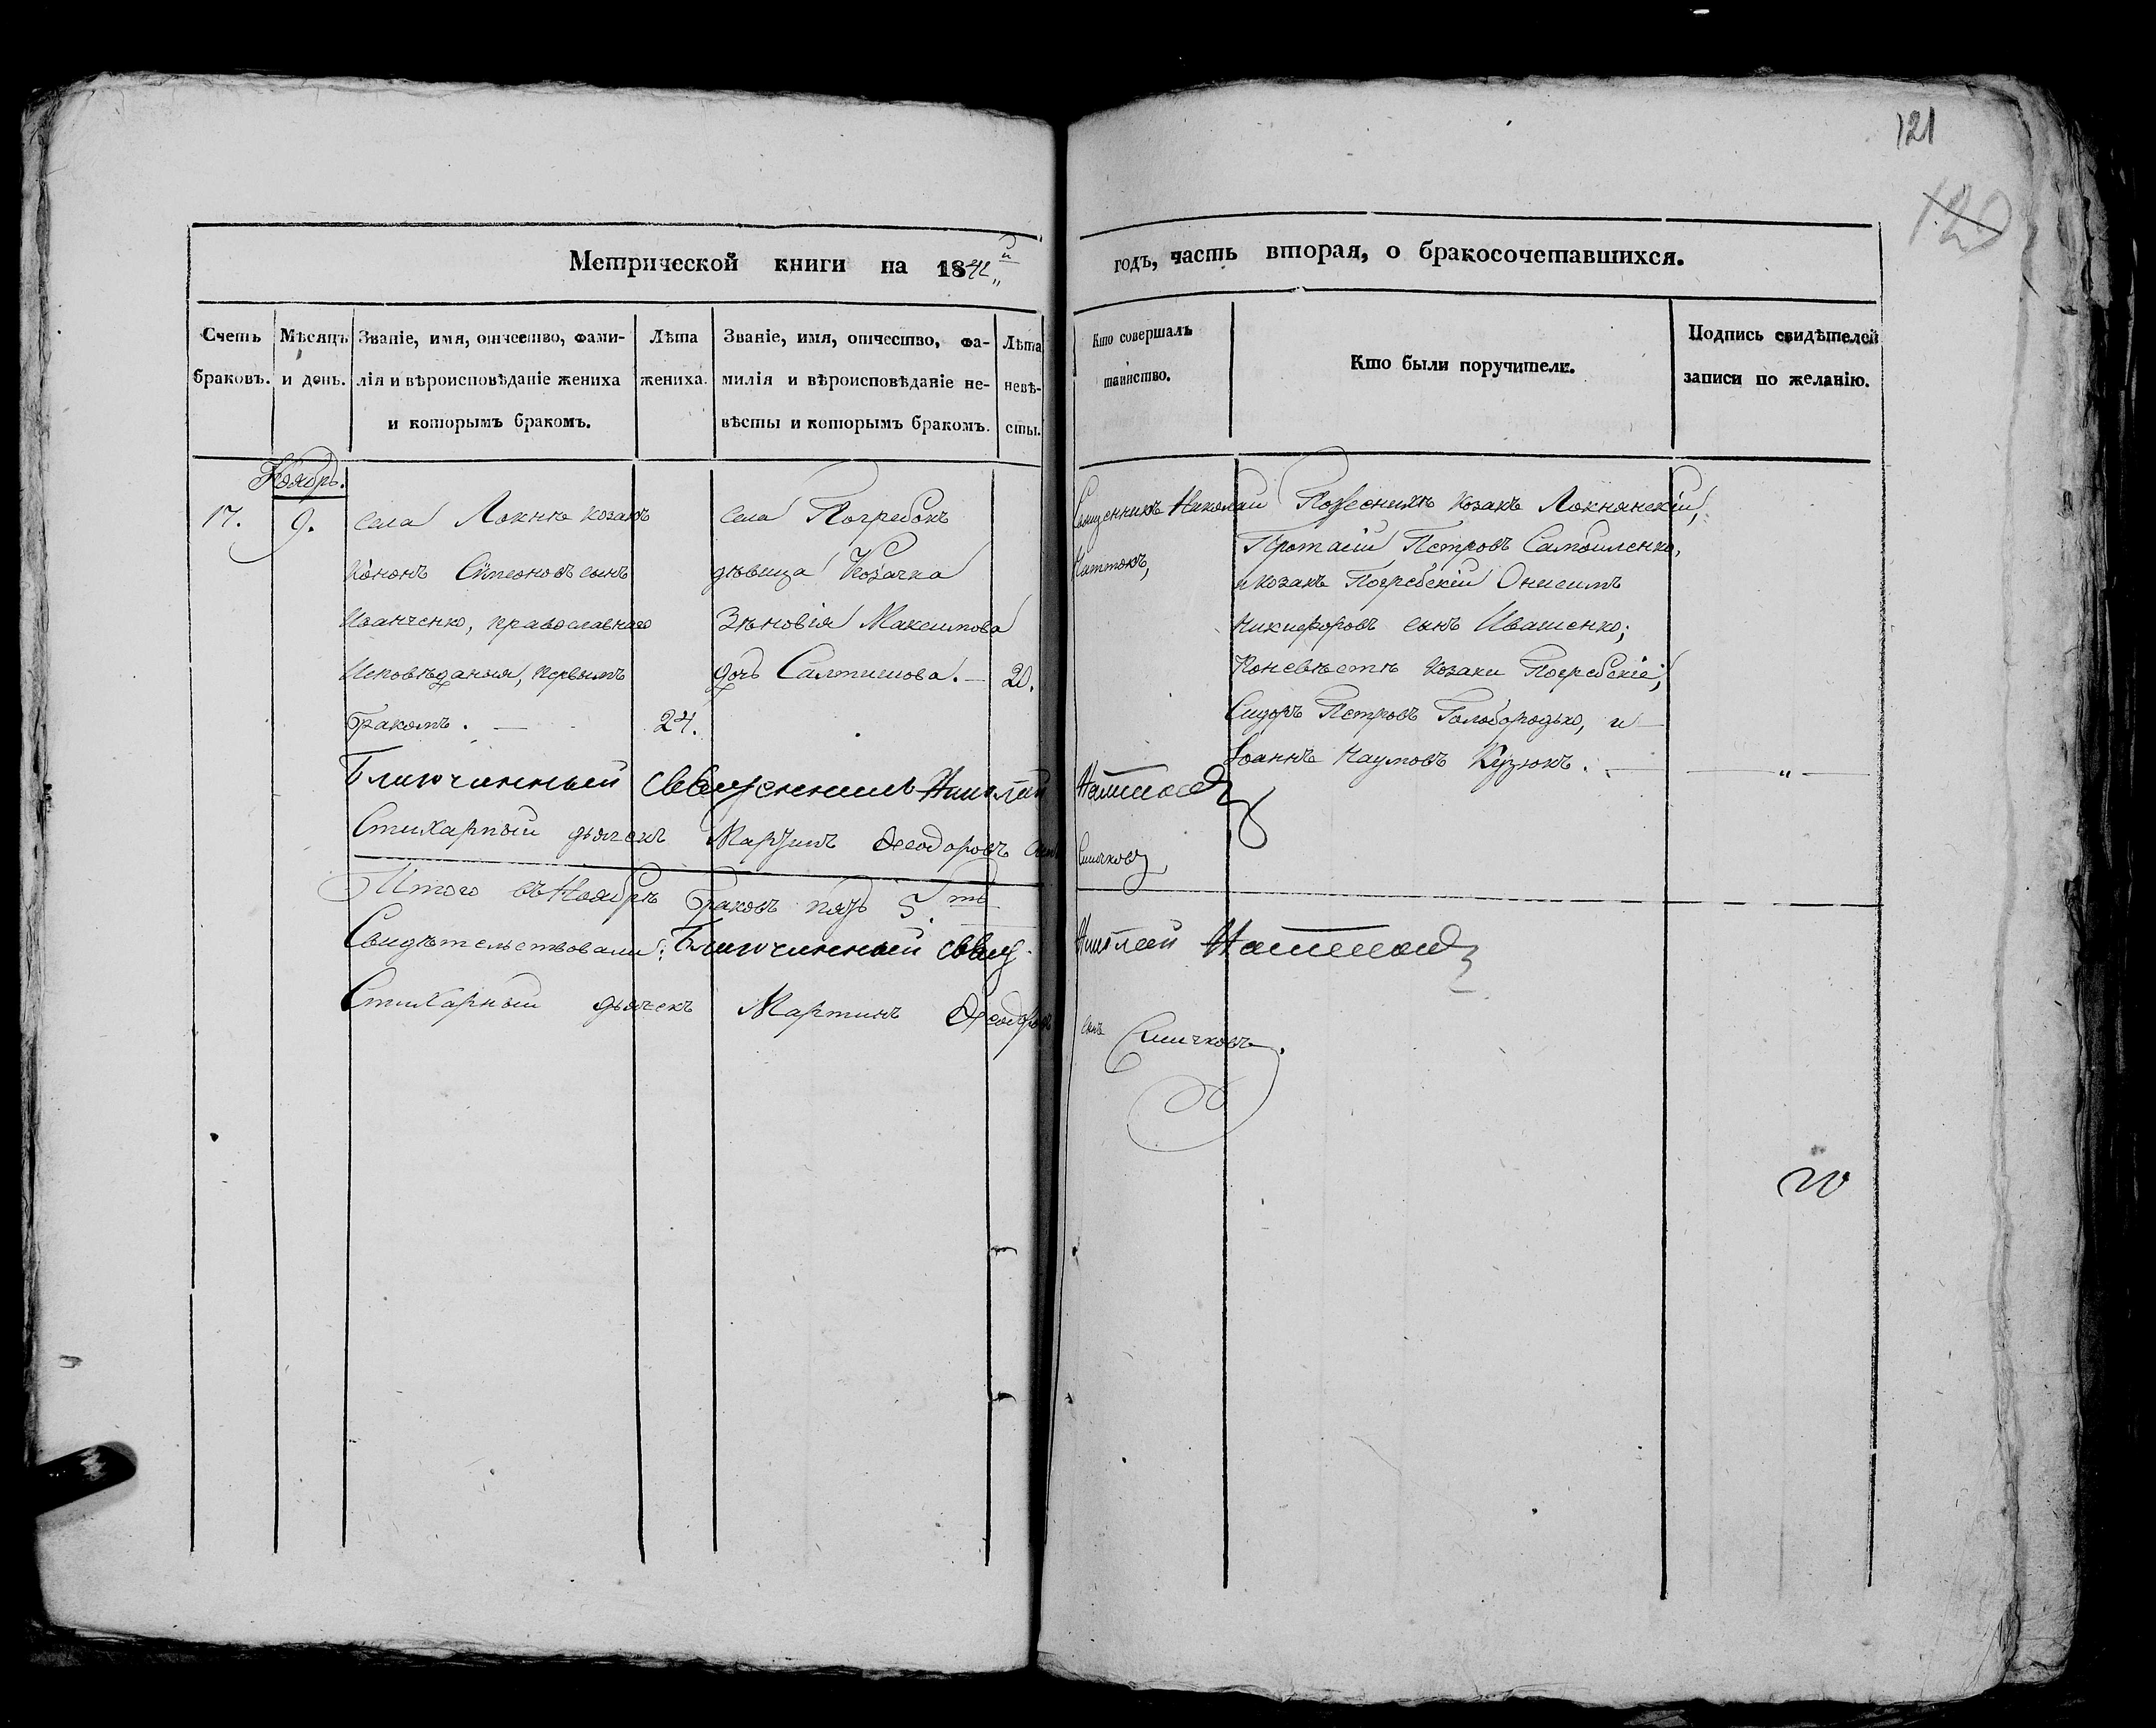 121
120
Метрической книги на 184 й годъ, часть вторая, о бракосочетавшихся.
Счетъ браковъ.
Мѣсяцъ и день.
Званіе, имя, отчество, фами-
лія и вѣроисповѣданіе жениха
и которымъ бракомъ.
Лѣта жениха.
Званіе, имя, отчество, фа-
милія и вѣроисповѣданіе не-
вѣсты и которымъ бракомъ.
Лѣта невѣ-
сты.
Кто совершалъ
таинство.
Кто были поручители.
Подпись свидѣтелей
записи по желанію.
Ноябрь.
17.
9.
села Локнѣ козакъ
Кононъ Сѵмеоновъ сынъ
Иванченко, православнаго
Исповѣданія, первымъ
бракомъ. —
24.
села Погребокъ
дѣвица Козачка
Зѣновія Максимова
дочь —
20.
Священникъ Николай
По женихѣ козакъ Локнянскій,
Протасій Петровъ Самойленко,
и козакъ Погребскій Онисимъ
Никифоровъ сынъ Иващенко;
По невѣстѣ козаки Погребскіе,
Сидоръ Петровъ Голобородько, и
Іоаннъ Наумовъ
Благочинный священникъ Николай
Стихарный дьячекъ Мартинъ Ѳеодоровъ сынъ
Итого въ Ноябрѣ браковъ пять 5.ть
Свидѣтельствовали: Благочинный свящ. Николай
Стихарный дьячекъ Мартинъ Ѳеодоровъ сынъ